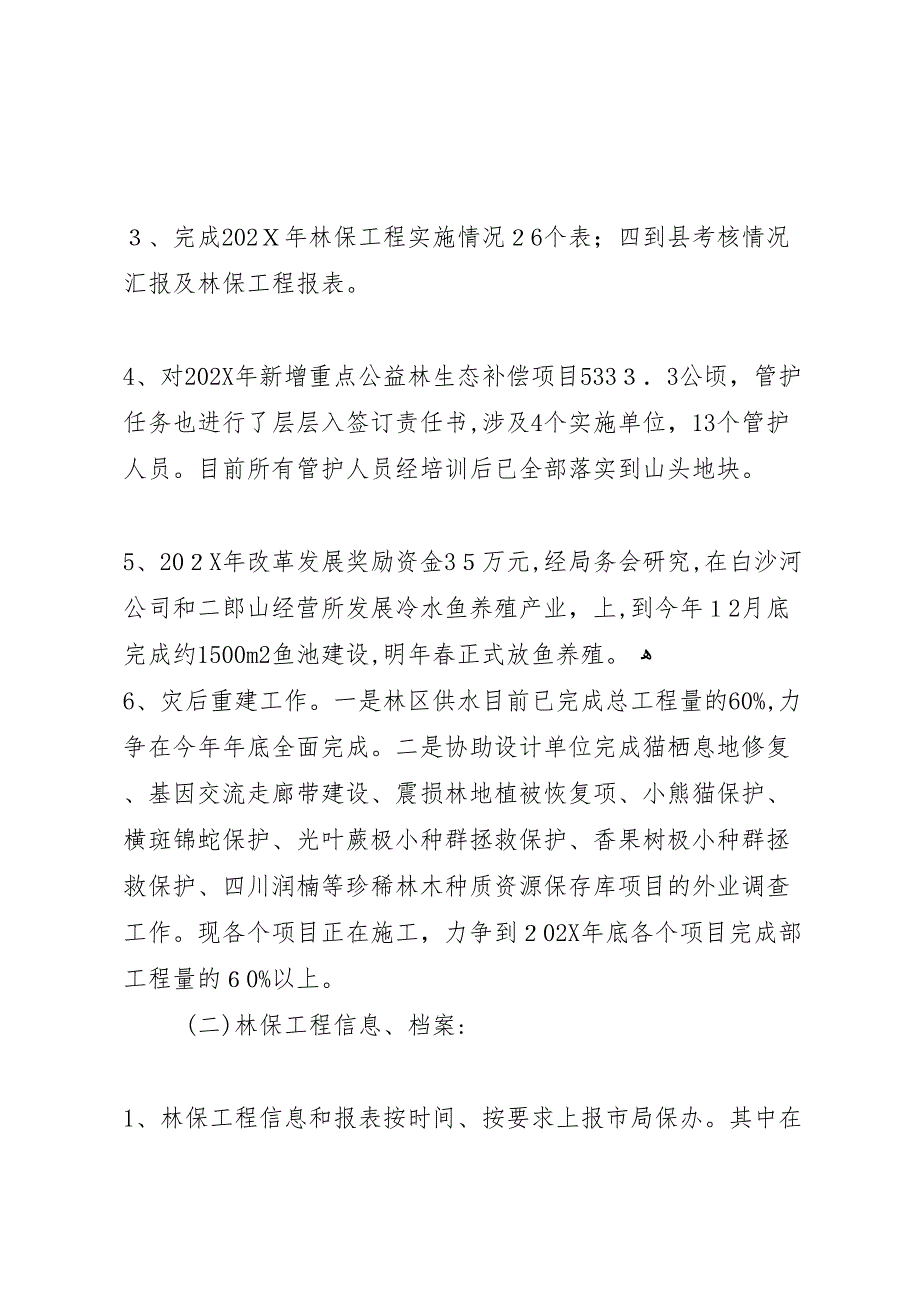 ３、完成202Ｘ年林保工程实施情况２6个表；四到县考核情况
汇报及林保工程报表。
4、对202X年新增重点公益林生态补偿项目533３．3公顷，管护
任务也进行了层层入签订责任书,涉及4个实施单位，13个管护
人员。目前所有管护人员经培训后已全部落实到山头地块。
5、20２X年改革发展奖励资金3５万元,经局务会研究,在白沙河
公司和二郎山经营所发展冷水鱼养殖产业，上,到今年１2月底
完成约1500m2鱼池建设,明年春正式放鱼养殖。
6、灾后重建工作。一是林区供水目前已完成总工程量的60%,力
争在今年年底全面完成。二是协助设计单位完成猫栖息地修复
、基因交流走廊带建设、震损林地植被恢复项、小熊猫保护、
横斑锦蛇保护、光叶蕨极小种群拯救保护、香果树极小种群拯
救保护、四川润楠等珍稀林木种质资源保存库项目的外业调查
工作。现各个项目正在施工，力争到２02X年底各个项目完成部
工程量的６0%以上。
(二)林保工程信息、档案:
1、林保工程信息和报表按时间、按要求上报市局保办。其中在